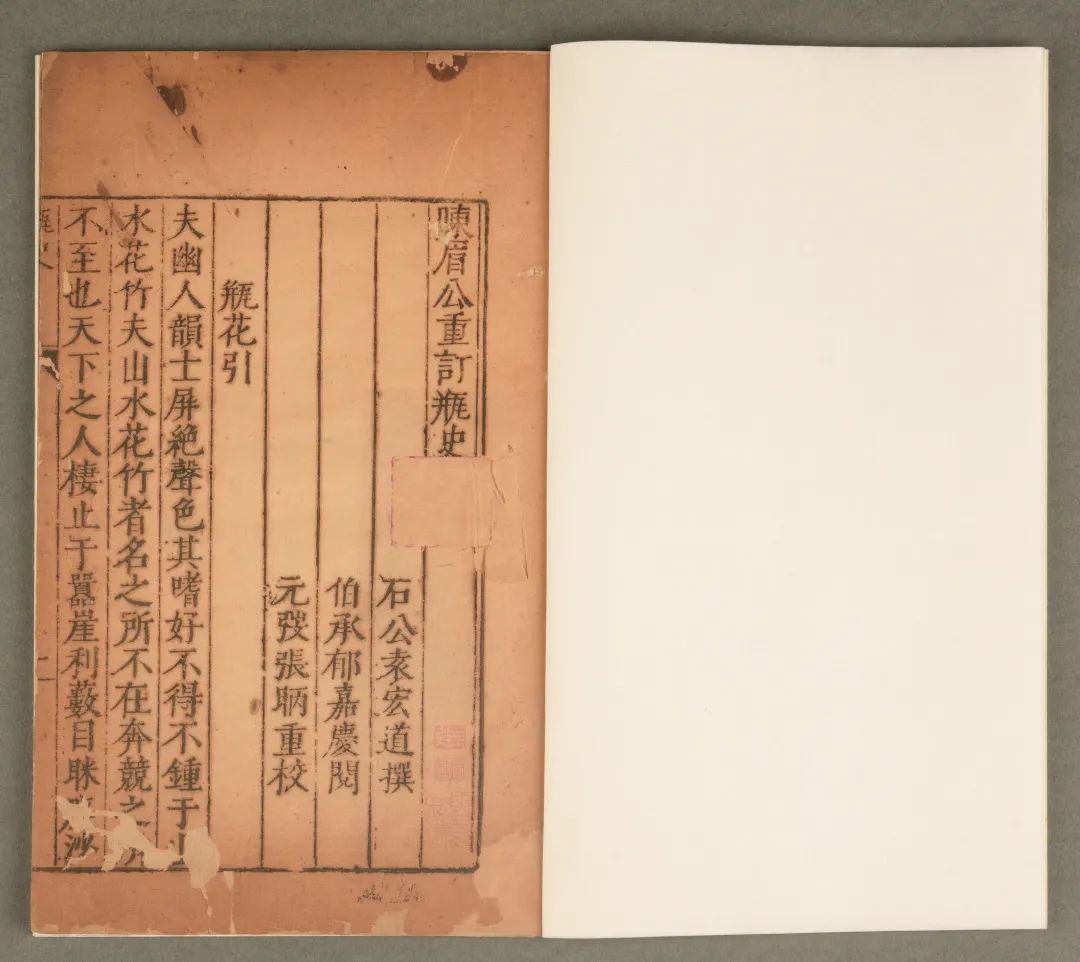 陳眉公重訂瓶史
石公袁宏道撰
伯承郁嘉慶閱
元弢張昞重校
瓶花引
夫幽人韻士屏絶聲色其嗜好不得不鍾于山
水花竹夫山水花竹者名之所不在奔競之
不至也天下之人棲止于嚣崖利藪目眯沙